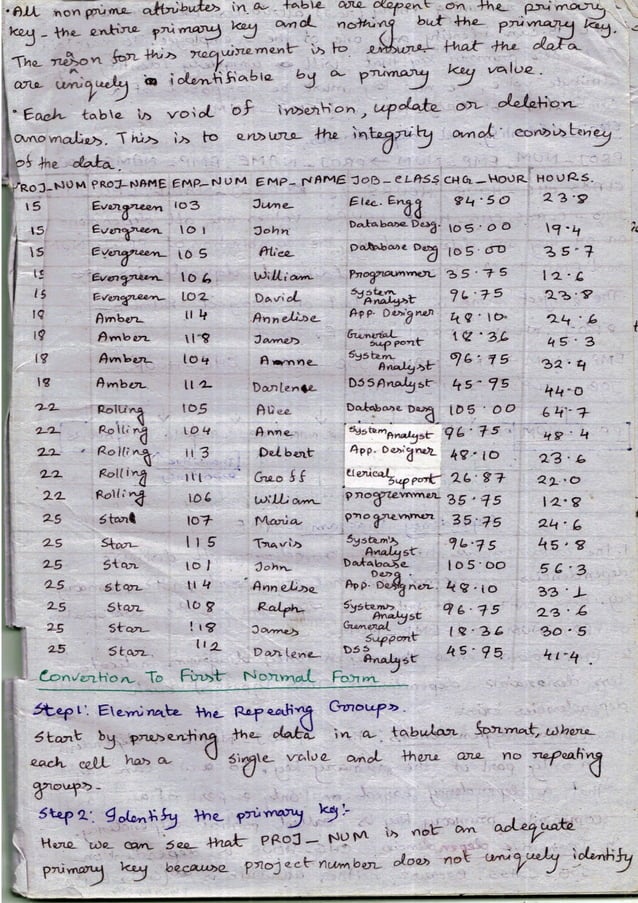 • All non prime attributes in a table are depent on the primary
key - the entire primary key and nothing but the primary key.
The reason for this requirement is to ensure that the data
are uniquely identifiable by a primary key value.
• Each table is void of insertion, update or deletion
anomalies. This is to ensure the integrity and consistency
of the data.
ROJ-NUM PROJ-NAME EMP-NUM EMP-NAME JOB-CLASS CHG-HOUR HOURS.
15 Evergreen 103 June Elec. Engg 84.50 23.8
15 Evergreen 101 John Database Desg. 105.00 19.4
15 Evergreen 105 Alice Database Desg 105.00 35.7
15 Evergreen 106 William Programmer 35.75 12.6
15 Evergreen 102 David System Analyst 96.75 23.8
18 Amber 114 Annelise App. Designer 48.10 24.6
18 Amber 118 James General support 18.36 45.3
18 Amber 104 Anne System Analyst 96.75 32.4
18 Amber 112 Darlene DSS Analyst 45-95 44-0
22 Rolling 105 Alice Database Desg 105.00 64-7
22 Rolling 104 Anne System Analyst 96.75 48.4
22 Rolling 113 Delbert App. Designer 48.10 23.6
22 Rolling 111 Geoff Clerical Support 26.87 22.0
22 Rolling 106 William programmer 35.75 12.8
25 Star 107 Maria programmer 35.75 24.6
25 Star 115 Travis System's Analyst. 96.75 45.8
25 Star 101 John Database Desg. 105.00 56.3
25 star 114 Annelise App. Designer. 48.10 33.1
25 Star 108 Ralph Systems Analyst 96.75 23.6
25 Star 118 James General Support 18.36 30.5
25 Star 112 Darlene DSS Analyst 45.95 41-4.
Convertion To First Normal Form
Step1: Eleminate the Repeating Groups.
Start by presenting the data in a tabular format, where
each cell has a single value and there are no repeating
groups.
Step 2: Identify the primary key:-
Here we can see that PROJ-NUM is not an adequate
primary key because project number does not uniquely identify